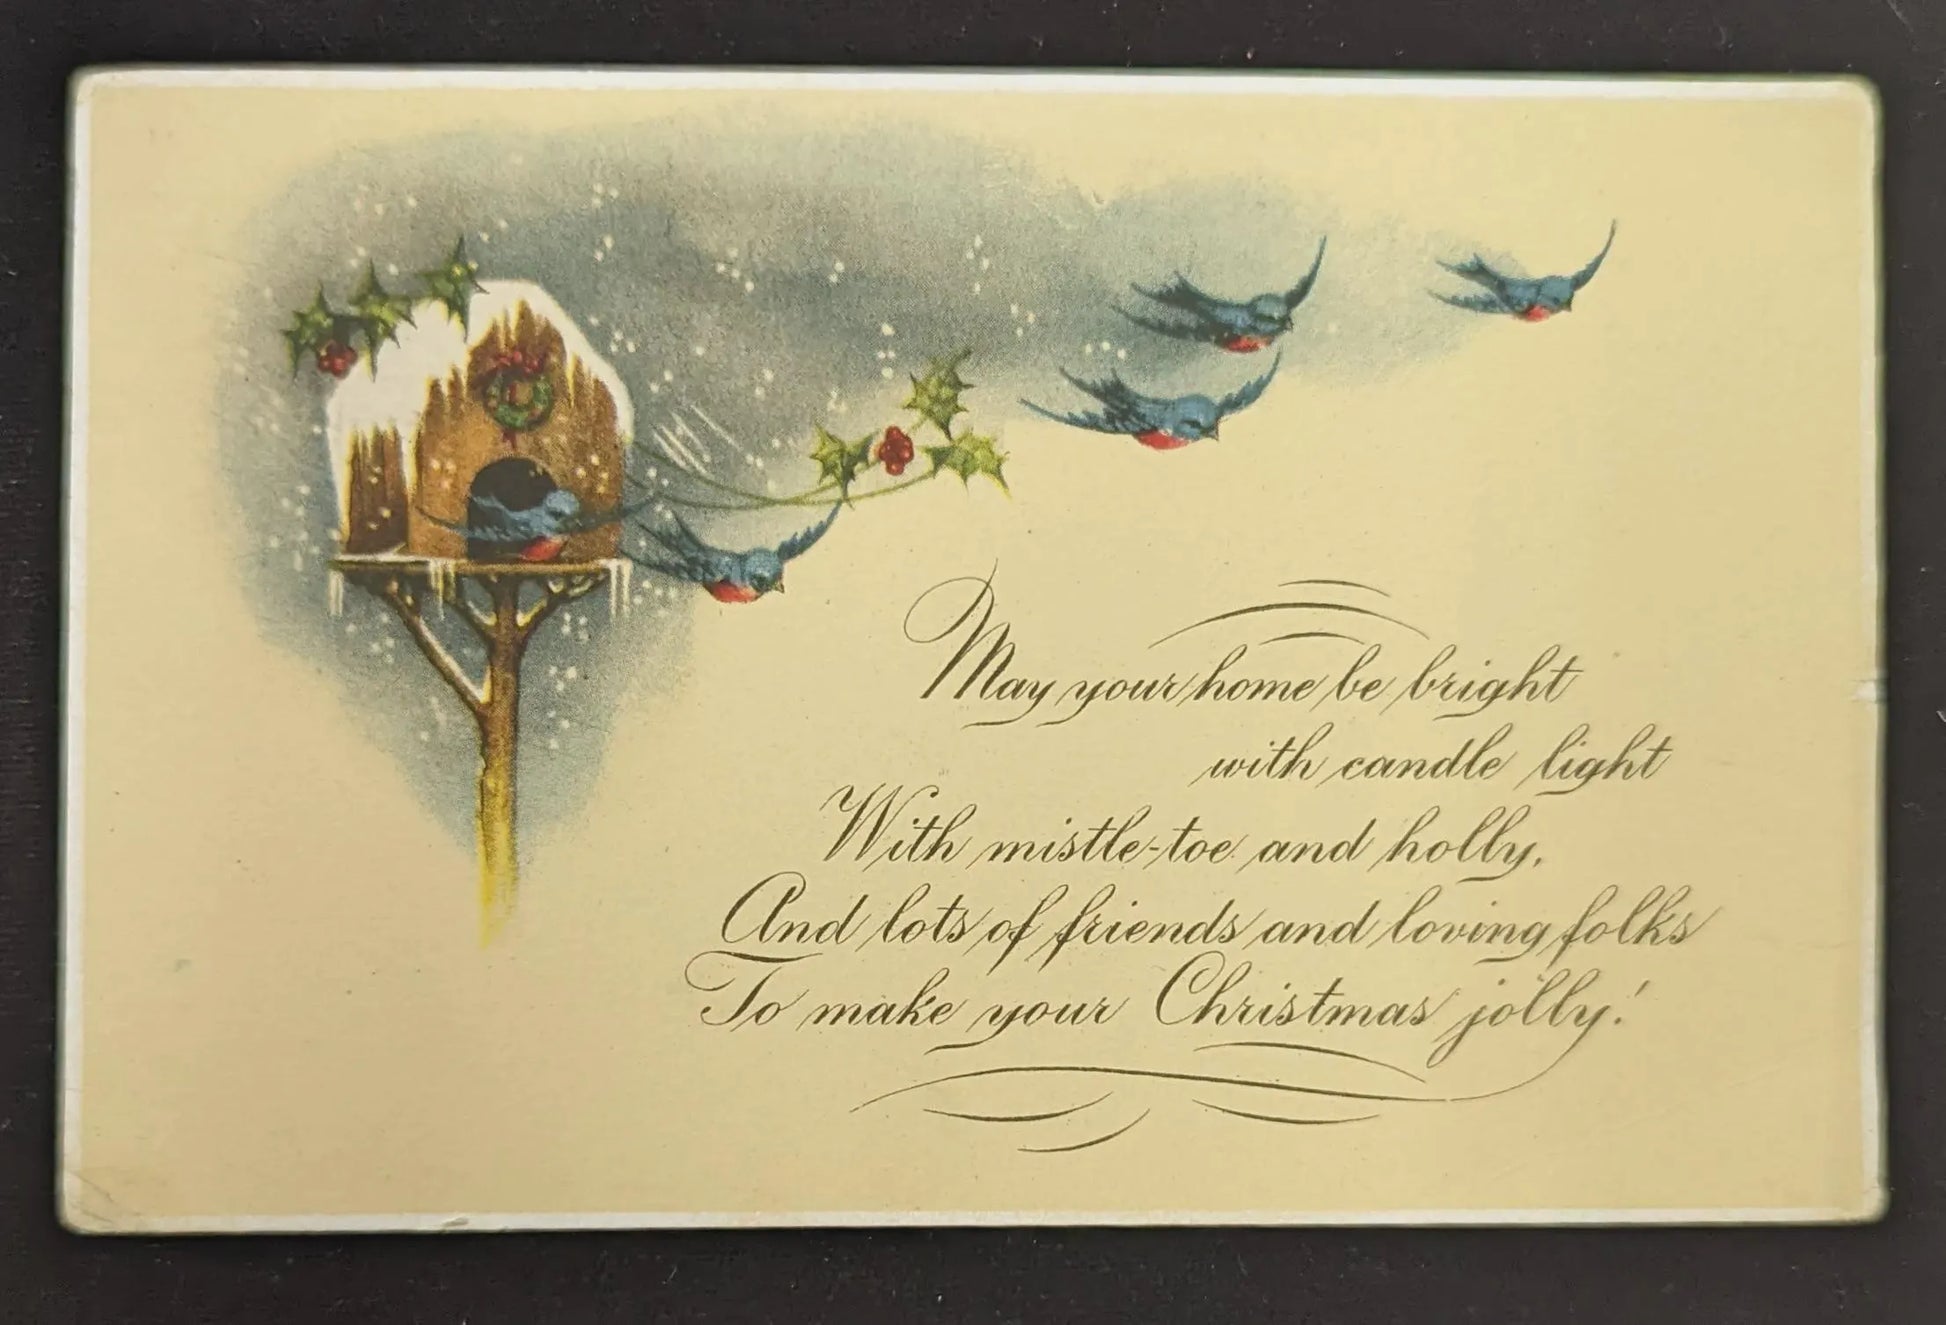 May your home be bright
with candle light
With mistle-toe and holly,
And lots of friends and loving folks
To make your Christmas jolly!